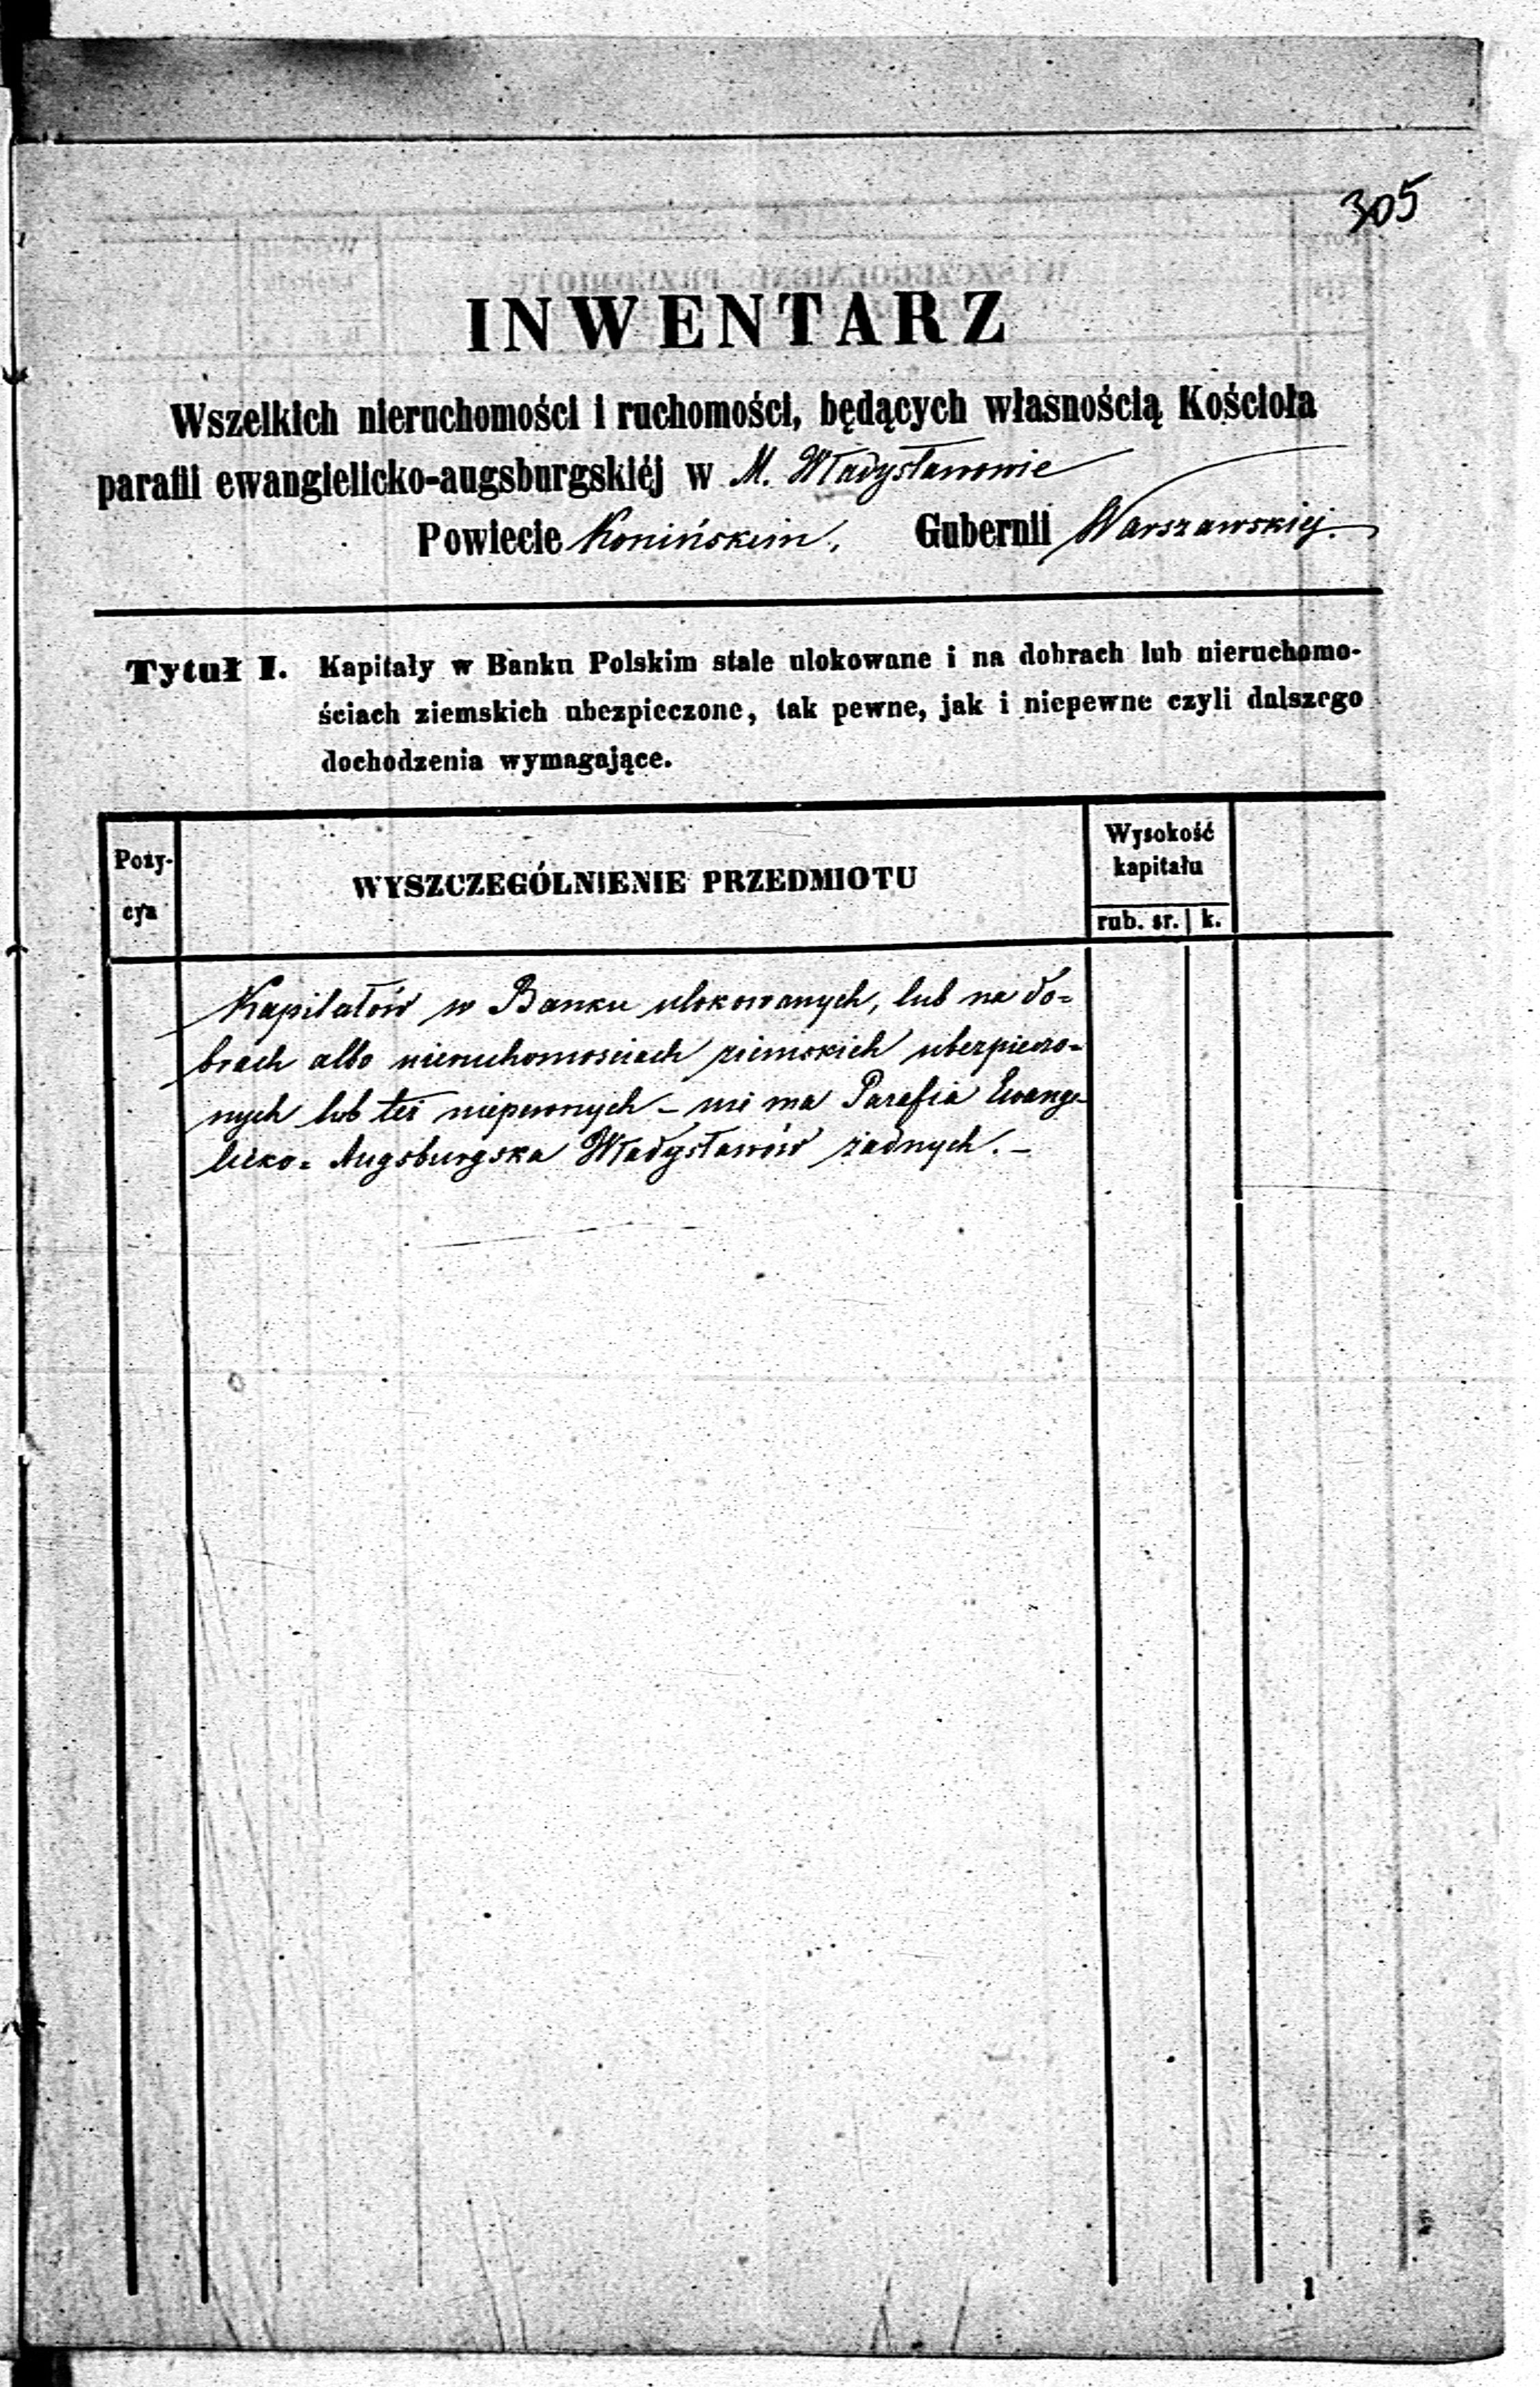 305
INWENTARZ
Wszelkich nieruchomości i ruchomości, będących własnością Kościoła
parafii ewangielicko-augsburgskiéj w M. Władysławowie
Powiecie Konińskim, Gubernii Warszawskiej.
Tytuł I. Kapitały w Banku Polskim stale ulokowane i na dobrach lub nieruchomo-
ściach ziemskich ubezpieczone, tak pewne, jak i niepewne czyli dalszego
dochodzenia wymagające.
Pozy-
cya
WYSZCZEGÓLNIENIE PRZEDMIOTU
Wysokość
kapitału
rub. sr. k.
Kapitałów w Banku ulokowanych, lub na do=
brach albo nieruchomościach ziemskich ubezpieczo=
nych lub też niepewnych – nie ma Parafia Ewange-
licko= Augsburgska Władysławów żadnych. –
1